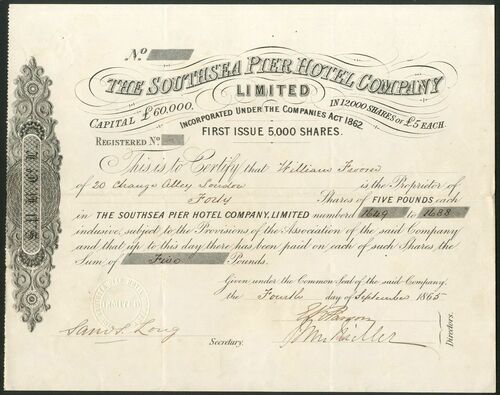 No.
THE SOUTHSEA PIER HOTEL COMPANY
LIMITED
CAPITAL £60,000. IN 12000 SHARES OF £5 EACH.
INCORPORATED UNDER THE COMPANIES ACT 1862.
FIRST ISSUE 5,000 SHARES.
REGISTERED No.
This is to Certify that William
of 20 Change Alley London is the Proprietor of
Forty Shares of FIVE POUNDS each
in THE SOUTHSEA PIER HOTEL COMPANY, LIMITED numbered 1649 to 1688
inclusive, subject to the Provisions of the Association of the said Company
and that up to this day there has been paid on each of such Shares the
Sum of Two Pounds.
Given under the Common Seal of the said Company.
the Fourth day of September 1865
Long
Secretary.
Directors.
S.P.H.C.L.
LIMITED